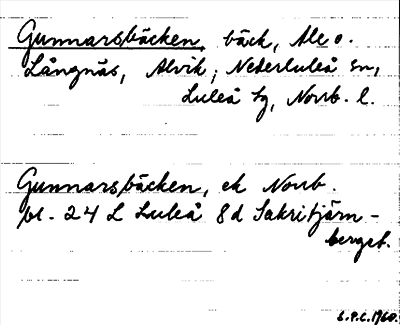 Gunnarsbäcken, bäck, Ale o.
Långnäs, Alvik, Nederluleå sn,
Luleå tg, Norrb. l.
Gunnarsbäcken, ek Norrb.
bl. 24 L Luleå 8d Sakritjärn-
berget.
S.P.C. 1960.